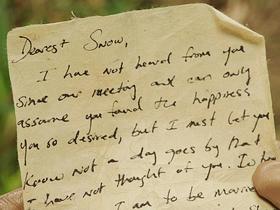 Dearest Snow,
I have not heard from you
since our meeting and can only
assume you found the happiness
you so desired, but I must let you
know not a day goes by that
I have not thought of you.
I am to be